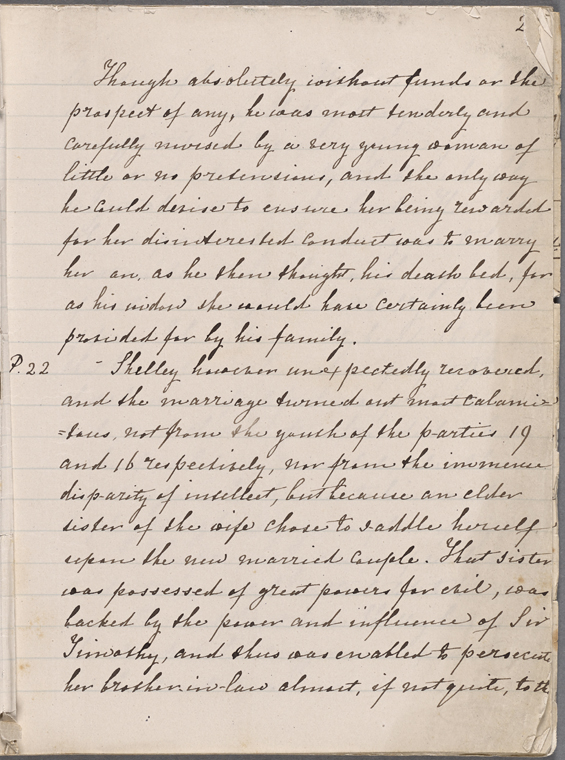 2
Though absolutely without funds or the
prospect of any, he was most tenderly and
carefully nursed by a very young woman of
little or no pretensions, and the only way
he could devise to ensure her being rewarded
for her disinterested conduct was to marry
her on, as he then thought, his death bed, for
as his widow she would have certainly been
provided for by his family.
P. 22 - Shelley however unexpectedly recovered,
and the marriage turned out most calami=
=tous, not from the youth of the parties 19
and 16 respectively, nor from the immense
disparity of intellect, but because an elder
sister of the wife chose to saddle herself
upon the new married couple. That sister
was possessed of great powers for evil, was
backed by the power and influence of Sir
Timothy, and thus was enabled to persecute
her brother-in-law almost, if not quite, to th